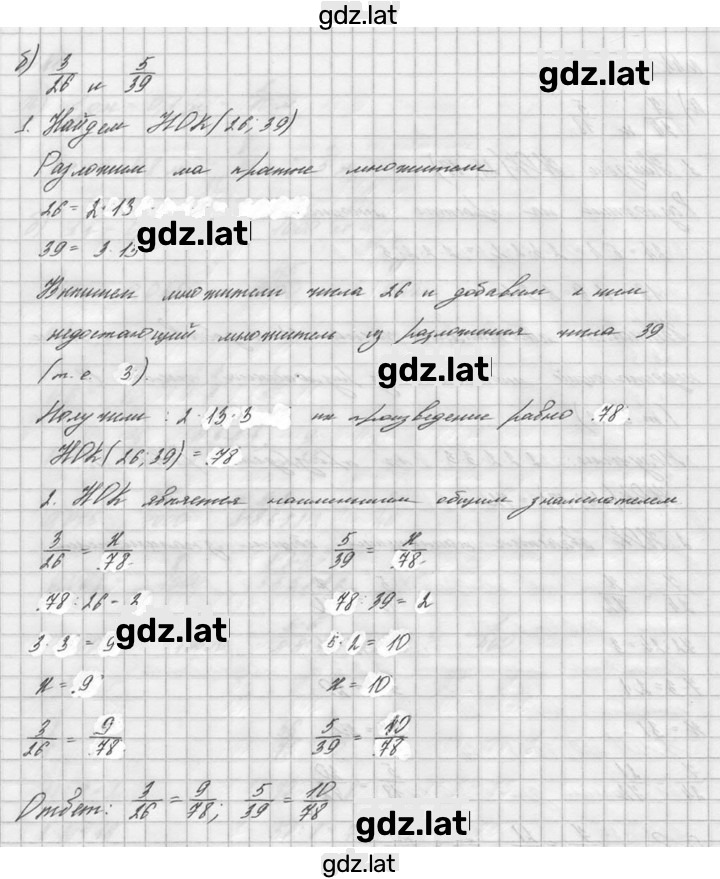 gdz.lat
б) 3/26 и 5/39
gdz.lat
1. Найдем НОК(26; 39)
Разложим на простые множители
26 = 2·13
39 = 3·13
gdz.lat
Выпишем множители числа 26 и добавим к ним
недостающий множитель из разложения числа 39
(т.е. 3).
gdz.lat
Получим: 2·13·3 их произведение равно 78.
НОК(26; 39) = 78
2. НОК является наименьшим общим знаменателем
3/26 = x/78 5/39 = x/78
78 : 26 = 2 78 : 39 = 2
3·3 = 9 5·2 = 10
gdz.lat
x = 9 x = 10
3/26 = 9/78 5/39 = 10/78
Ответ: 3/26 = 9/78; 5/39 = 10/78
gdz.lat
gdz.lat